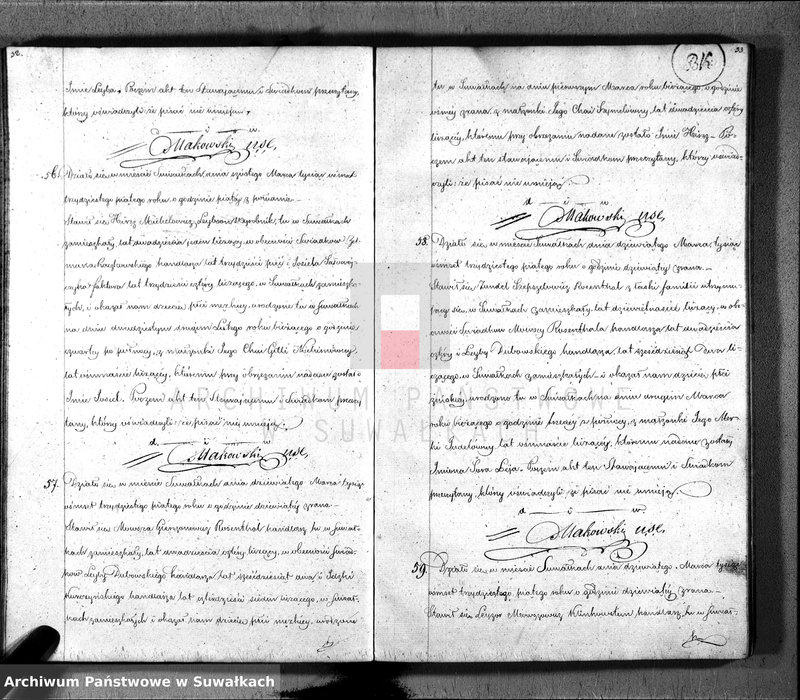 32.
Imie Leyba, Poczem akt ten Stawającemu i Świadkom przeczytany,
którzy oświadczyli że pisać nie umieją,
Makowski
56. Działo się w mieście Suwałkach dnia szóstego Marca tysiąc ośmset
trzydziestego piątego roku o godzinie piątey z południa
Stawił się Hersz Michelowicz Wyrobnik, tu w Suwałkach
zamieszkały, lat dwadzieścia jeden liczący, w obecności Świadków
handlarza lat trzydzieści pięć i Josiela
faktora lat trzydzieści cztery liczącego, w Suwałkach zamieszka-
łych, i okazał nam dziecie płci męzkiey, urodzone tu w Suwałkach
na dniu dwudziestym drugim Lutego roku bieżącego o godzinie
czwartey po północy, z małżonki Jego Chai Gitli
lat ośmnaście liczącey, któremu przy obrzezaniu nadane zostało
Imie Josel. Poczem akt ten Stawającemu i Świadkom przeczy-
tany, którzy oświadczyli że pisać nie umieją.
Makowski
57. Działo się w mieście Suwałkach dnia dziewiątego Marca tysiąc
ośmset trzydziestego piątego roku o godzinie dziewiątey zrana
Stawił się Mowsza Rosenthal handlarz tu w Suwał-
kach zamieszkały, lat dwadzieścia cztery liczący, w obecności Świad-
ków Leyby Dubowskiego handlarza lat sześćdziesiąt dwa i
handlarza lat czterdzieści siedm liczącego, w Suwał-
kach zamieszkałych i okazał nam dziecie płci męzkiey, urodzone
33
BK
tu w Suwałkach na dniu pierwszym Marca roku bieżącego, o godzinie
osmey zrana, z małżonki Jego Chai lat dwadzieścia cztery
liczącey, któremu przy obrzezaniu nadane zostało Imie Hersz. Po-
czem akt ten stawającemu i Świadkom przeczytany, którzy oświad-
czyli że pisać nie umieją.
Makowski
58. Działo się w mieście Suwałkach dnia dziewiątego Marca, tysiąc
ośmset trzydziestego piątego roku o godzinie dziewiątey zrana
Stawił się Zundel Rosenthal z łaski familii utrzymu-
jący się, w Suwałkach zamieszkały, lat dziewiętnaście liczący, w obe-
cności Świadków Mowszy Rosenthala handlarza lat dwadzieścia
cztery i Leyby Dubowskiego handlarza, lat sześćdziesiąt dwa li-
czącego, w Suwałkach zamieszkałych i okazał nam dziecie płci
żeńskiey, urodzone tu w Suwałkach na dniu drugim Marca
roku bieżącego o godzinie trzeciey z północy, z małżonki Jego
lat ośmnaście liczącey, któremu nadane zostały
Imiona Sora Leja. Poczem akt ten Stawającemu i Świadkom
przeczytany, którzy oświadczyli że pisać nie umieją.
Makowski
59. Działo się w mieście Suwałkach dnia dziewiątego Marca tysiąc
ośmset trzydziestego piątego roku o godzinie dziewiątey zrana
Stawił się Leyzor handlarz, tu w Suwał-
ARCHIWUM PAŃSTWOWE
SUWAŁKI
Archiwum Państwowe w Suwałkach